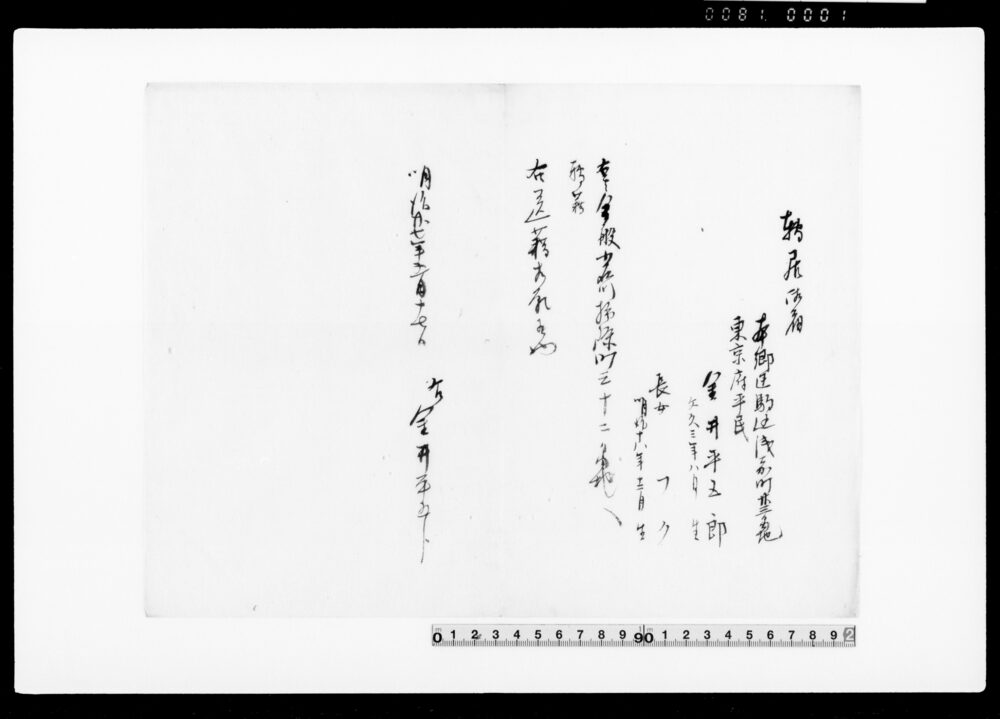 0081. 0001
轉居御届
本郷區駒込浅嘉町廿三番地
東京府平民
金井平五郎
文久三年八月生
長女 フク
明治十八年十二月生
右今般小石川掃除町三十二番地へ
轉籍
右送籍
明治廿七年二月十七日
右金井平五郎
0 1 2 3 4 5 6 7 8 9 0 1 2 3 4 5 6 7 8 9 2